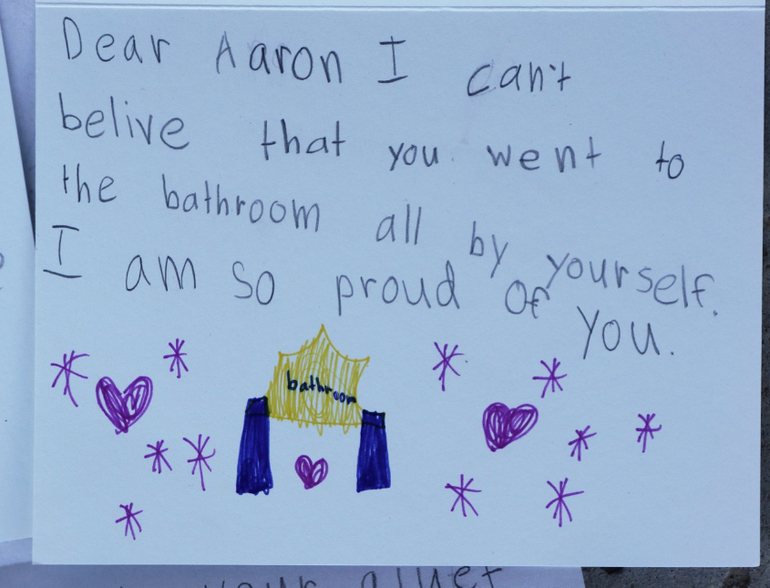 Dear Aaron I can't
belive that you went to
the bathroom all by yourself.
I am so proud of
you.
bathroom
your